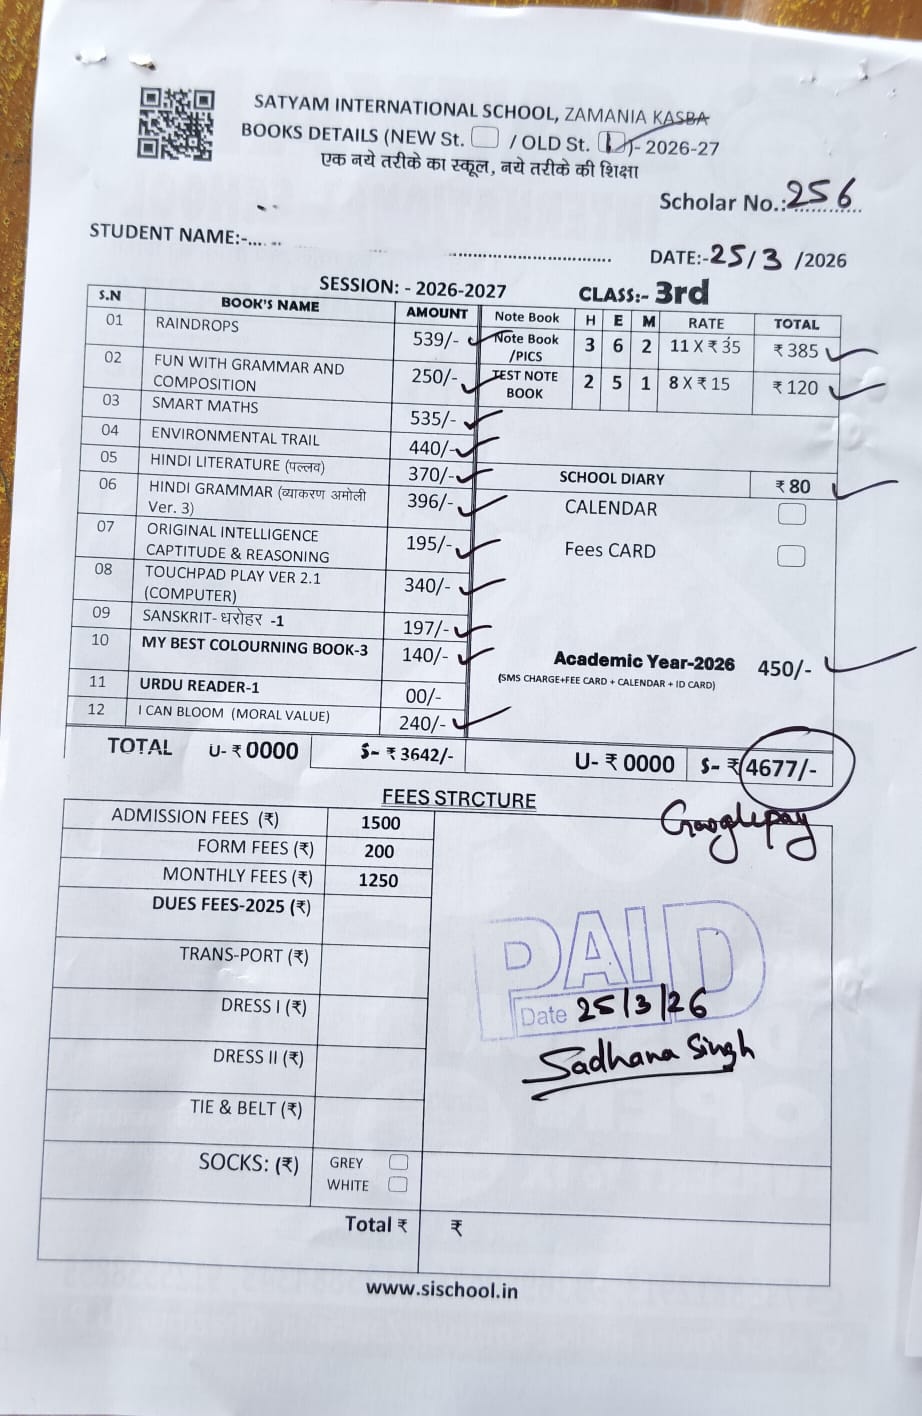 SATYAM INTERNATIONAL SCHOOL, ZAMANIA KASBA
BOOKS DETAILS (NEW St. / OLD St. )- 2026-27
एक नये तरीके का स्कूल, नये तरीके की शिक्षा
Scholar No.:256
STUDENT NAME:-
DATE:-25/3/2026
SESSION: - 2026-2027 CLASS:- 3rd
S.N BOOK'S NAME AMOUNT
01 RAINDROPS 539/-
02 FUN WITH GRAMMAR AND COMPOSITION 250/-
03 SMART MATHS 535/-
04 ENVIRONMENTAL TRAIL 440/-
05 HINDI LITERATURE (पल्लव) 370/-
06 HINDI GRAMMAR (व्याकरण अमोली Ver. 3) 396/-
07 ORIGINAL INTELLIGENCE CAPTITUDE & REASONING 195/-
08 TOUCHPAD PLAY VER 2.1 (COMPUTER) 340/-
09 SANSKRIT- धरोहर -1 197/-
10 MY BEST COLOURNING BOOK-3 140/-
11 URDU READER-1 00/-
12 I CAN BLOOM (MORAL VALUE) 240/-
TOTAL U- ₹ 0000 $- ₹ 3642/-
Note Book H E M RATE TOTAL
Note Book /PICS 3 6 2 11 X ₹ 35 ₹ 385
TEST NOTE BOOK 2 5 1 8 X ₹ 15 ₹ 120
SCHOOL DIARY ₹ 80
CALENDAR
Fees CARD
Academic Year-2026 450/-
(SMS CHARGE+FEE CARD + CALENDAR + ID CARD)
U- ₹ 0000 $- ₹ 4677/-
Googlepay
FEES STRCTURE
ADMISSION FEES (₹) 1500
FORM FEES (₹) 200
MONTHLY FEES (₹) 1250
DUES FEES-2025 (₹)
TRANS-PORT (₹)
DRESS I (₹)
DRESS II (₹)
TIE & BELT (₹)
SOCKS: (₹) GREY
WHITE
Total ₹ ₹
PAID
Date 25/3/26
Sadhana Singh
www.sischool.in